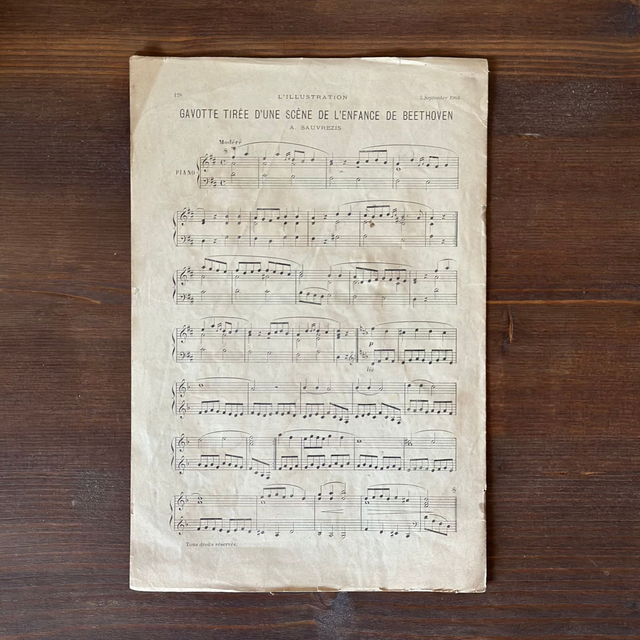 128
L'ILLUSTRATION
5 Septembre 1903
GAVOTTE TIRÉE D'UNE SCÈNE DE L'ENFANCE DE BEETHOVEN
A. SAUVREZIS
Modéré
PIANO
p
Tous droits réservés.